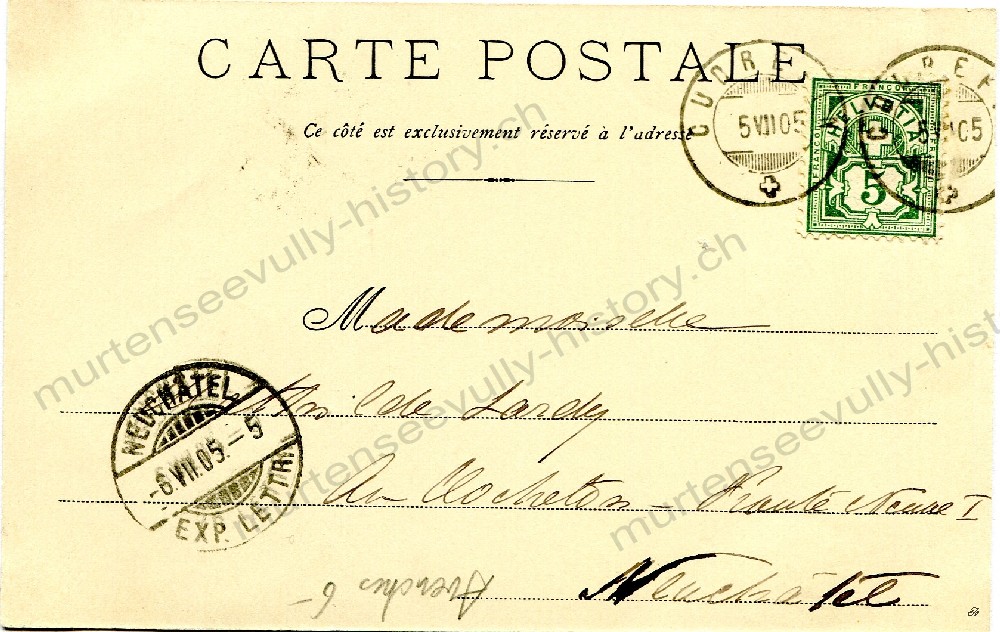 CARTE POSTALE
Ce côté est exclusivement réservé à l'adresse
CUDREFIN
5 VII 05
CUDREFIN
5 VII 05
FRANCO
HELVETIA
5
Mademoiselle
de Sandy
Au Clocheton Neuve
Neuchâtel
NEUCHÂTEL
-6.VII.05.-5
EXP. LETTR.
Avenches 6
murtenseevully-history.ch
murtenseevully-history.ch
murtenseevully-history.ch
murtenseevully-history.ch